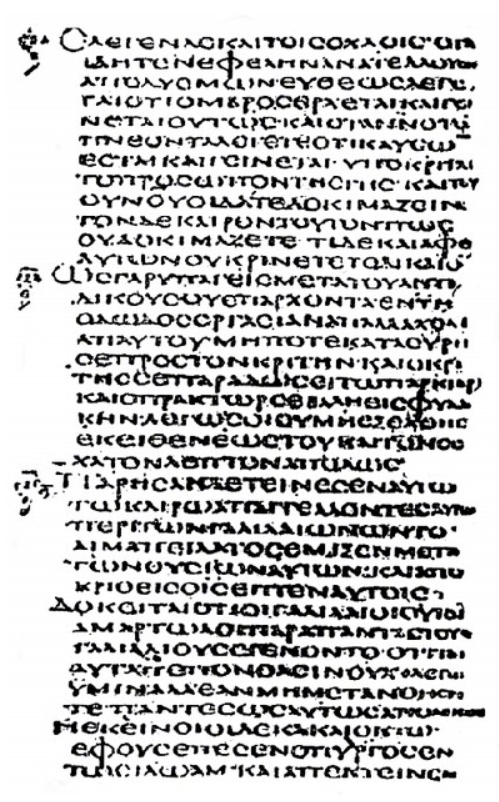 ΕΛΕΓΕΝΔΕΚΑΙΤΟΙϹΟΧΛΟΙϹ·ΟΤΑ
ΙΔΗΤΕΝΕΦΕΛΗΝΑΝΑΤΕΛΛΟΥϹΑΝ
ΑΠΟΔΥϹΜΩΝΕΥΘΕΩϹΛΕΓΕ
ΤΑΙΟΤΙΟΜΒΡΟϹΕΡΧΕΤΑΙΚΑΙΓΕΙ
ΝΕΤΑΙΟΥΤΩϹΚΑΙΟΤΑΝΝΟΤΟ
ΠΝΕΟΝΤΑΛΕΓΕΤΕΟΤΙΚΑΥϹΩ
ΕϹΤΑΙΚΑΙΓΕΙΝΕΤΑΙ·ΥΠΟΚΡΙΤΑΙ
ΤΟΠΡΟϹΩΠΟΝΤΗϹΓΗϹ·ΚΑΙΤΟΥ
ΟΥΝΟΥΟΙΔΑΤΕΔΟΚΙΜΑΖΕΙΝ
ΤΟΝΔΕΚΑΙΡΟΝΤΟΥΤΟΝΠΩϹ
ΟΥΔΟΚΙΜΑΖΕΤΕ·ΤΙΔΕΚΑΙΑΦΕ
ΑΥΤΩΝΟΥΚΡΙΝΕΤΕΤΟΔΙΚΑΙΟ
ΩϹΓΑΡΥΠΑΓΕΙϹΜΕΤΑΤΟΥΑΝΤΙ
ΔΙΚΟΥϹΟΥΕΠΑΡΧΟΝΤΑΕΝΤΗ
ΟΔΩΔΟϹΕΡΓΑϹΙΑΝΑΠΑΛΛΑΧΘΑΙ
ΑΠΑΥΤΟΥΜΗΠΟΤΕΚΑΤΑϹΥΡΗ
ϹΕΠΡΟϹΤΟΝΚΡΙΤΗΝ·ΚΑΙΟΚΡΙ
ΤΗϹϹΕΠΑΡΑΔΩϹΕΙΤΩΠΡΑΚΤΟΡΙ
ΚΑΙΟΠΡΑΚΤΩΡϹΕΒΑΛΗΕΙϹΦΥΛΑ
ΚΗΝ·ΛΕΓΩϹΟΙΟΥΜΗΕΞΕΛΘΗϹ
ΕΚΕΙΘΕΝΕΩϹΤΟΥΚΑΙΤΟΝΕϹ
ΧΑΤΟΝΛΕΠΤΟΝΑΠΟΔΩϹ
ΠΑΡΗϹΑΝΔΕΤΕΙΝΕϹΕΝΑΥΤΩ
ΤΩΚΑΙΡΩΑΠΑΓΓΕΛΛΟΝΤΕϹΑΥΤΩ
ΠΕΡΙΤΩΝΓΑΛΙΛΑΙΩΝΩΝΤΟ
ΑΙΜΑΠΕΙΛΑΤΟϹΕΜΙΞΕΝΜΕΤΑ
ΤΩΝΘΥϹΙΩΝΑΥΤΩΝ·ΚΑΙΑΠΟ
ΚΡΙΘΕΙϹΟΙϹΕΙΠΕΝΑΥΤΟΙϹ
ΔΟΚΕΙΤΑΙΟΤΙΟΙΓΑΛΙΛΑΙΟΙΟΥΤΟΙ
ΑΜΑΡΤΩΛΟΙΠΑΡΑΠΑΝΤΑϹΤΟΥϹ
ΓΑΛΙΛΑΙΟΥϹΕΓΕΝΟΝΤΟ·ΟΤΙΤΑΙ
ΑΥΤΑΠΕΠΟΝΘΑϹΙΝΟΥΧΙΛΕΓΩ
ΥΜΙΝΑΛΛΕΑΝΜΗΜΕΤΑΝΟΗϹΗ
ΤΕΠΑΝΤΕϹΩϹΑΥΤΩϹΑΠΟΛΕΙϹΘΕ
ΗΕΚΕΙΝΟΙΟΙΔΕΚΑΚΑΙΟΚΤΩ
ΕΦΟΥϹΕΠΕϹΕΝΟΠΥΡΓΟϹΕΝ
ΤΩϹΙΛΩΑΜ·ΚΑΙΑΠΕΚΤΕΙΝΕΝ